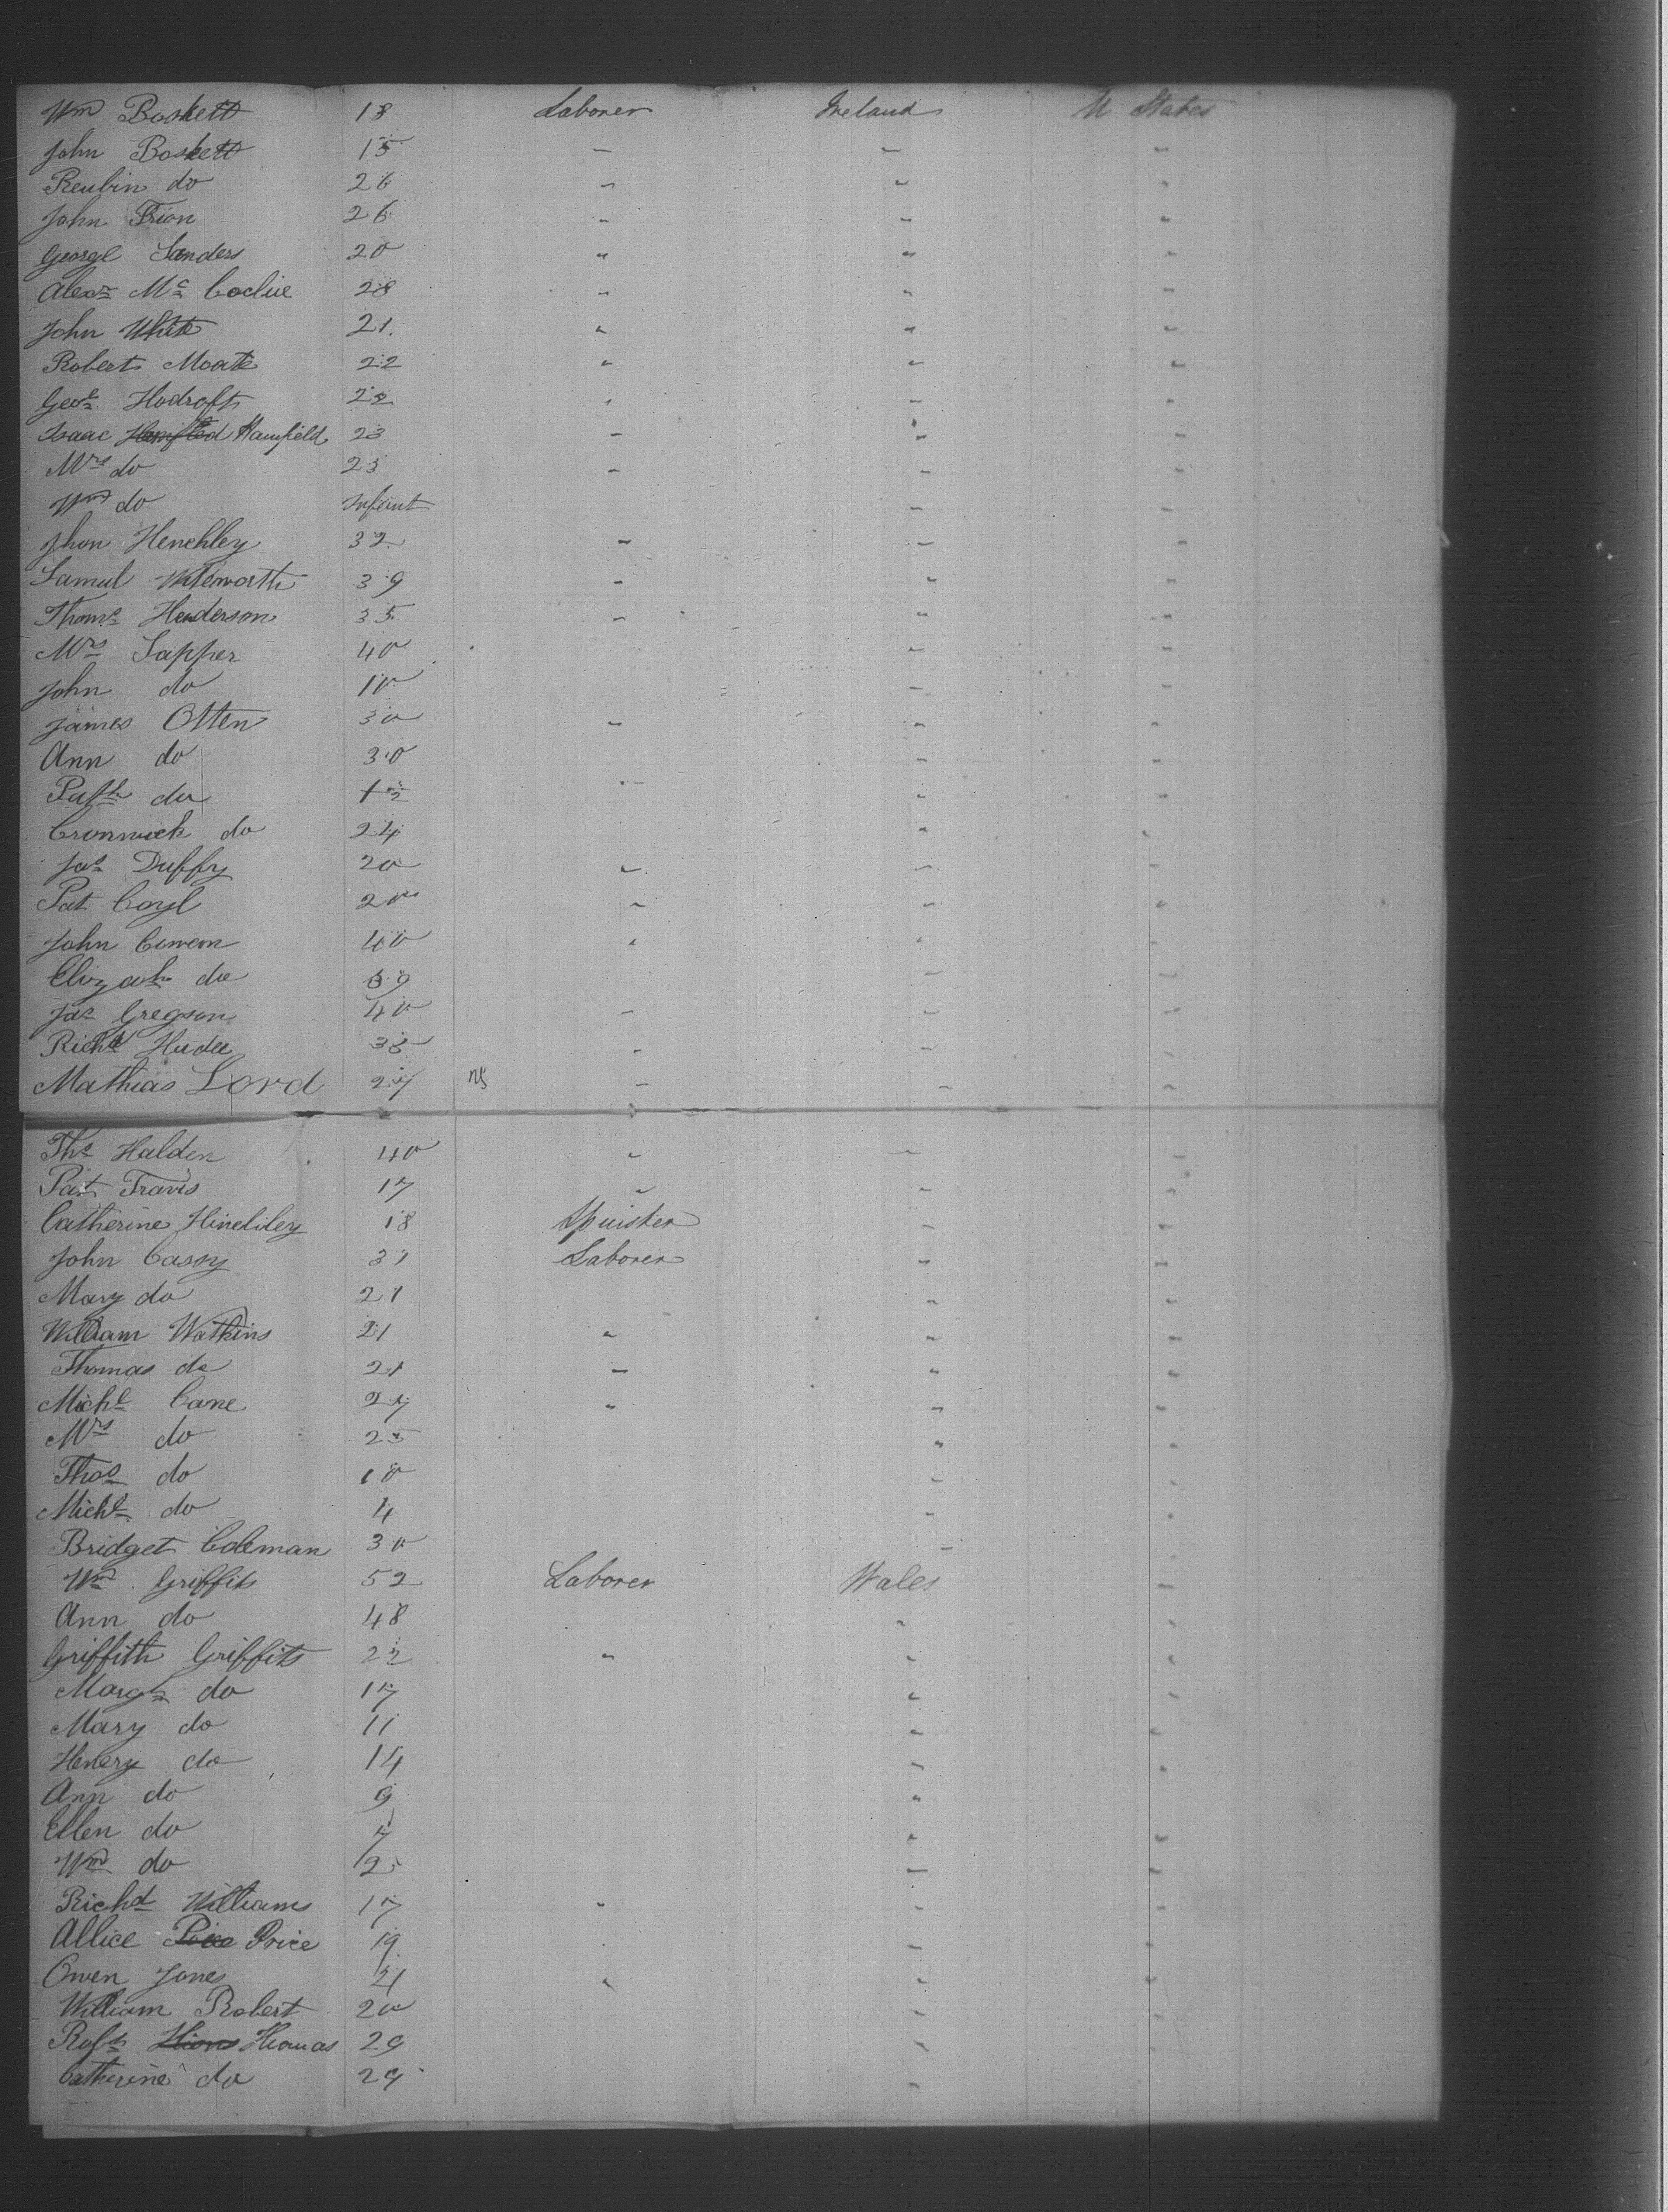 Wm Boskett 18 Laborer Ireland U States
John Boskett 15 " " "
Reubin do 26 " " "
John Trion 26 " " "
George Sanders 20 " " "
Alexr Mc 28 " " "
John White 21 " " "
Robert Moate 22 " " "
Geoe Hodroft 22 " " "
Isaac Hamfield 23 " " "
Mrs do 23 " " "
Wm do Infant " "
Jhon Henchley 32 " " "
Samul Witeworth 39 " " "
Thoms Henderson 35 " " "
Mrs Sapper 40 " "
John do 10 " "
James Otten 30 " " "
Ann do 30 " "
do " " "
Cronwick do 24 " "
Jas Duffy 20 " " "
Pat Coyl 20 " " "
John Cowen 40 " " "
Elizah do 39 " "
Jas Gregson 40 " " "
Richd Hude " " "
Mathias Lord 27 " " "
Ths Halden 40 " " "
Pat Travis 17 " " "
Catherine Hinchley 18 Spuister " "
John Casey 31 Laborer " "
Mary do 21 " "
William Watkins 21 " " "
Thomas do 21 " " "
Michl Cane 27 " " "
Mrs do 25 " "
Thos do 10 " "
Michl do 4 " "
Bridget Coleman 30 " "
Wm Griffits 52 Laborer Wales "
Ann do 48 " "
Griffith Griffits 22 " " "
Margt do 17 " "
Mary do 11 " "
Henery do 14 " "
Ann do 9 "
Ellen do 7 " "
Wm do 2 " "
Richd Williams 17 " " "
Allice Price 19 " "
Owen Jones 21 " " "
William Robert 20 " "
Robt Thomas 29 " "
Catherine do 29 "